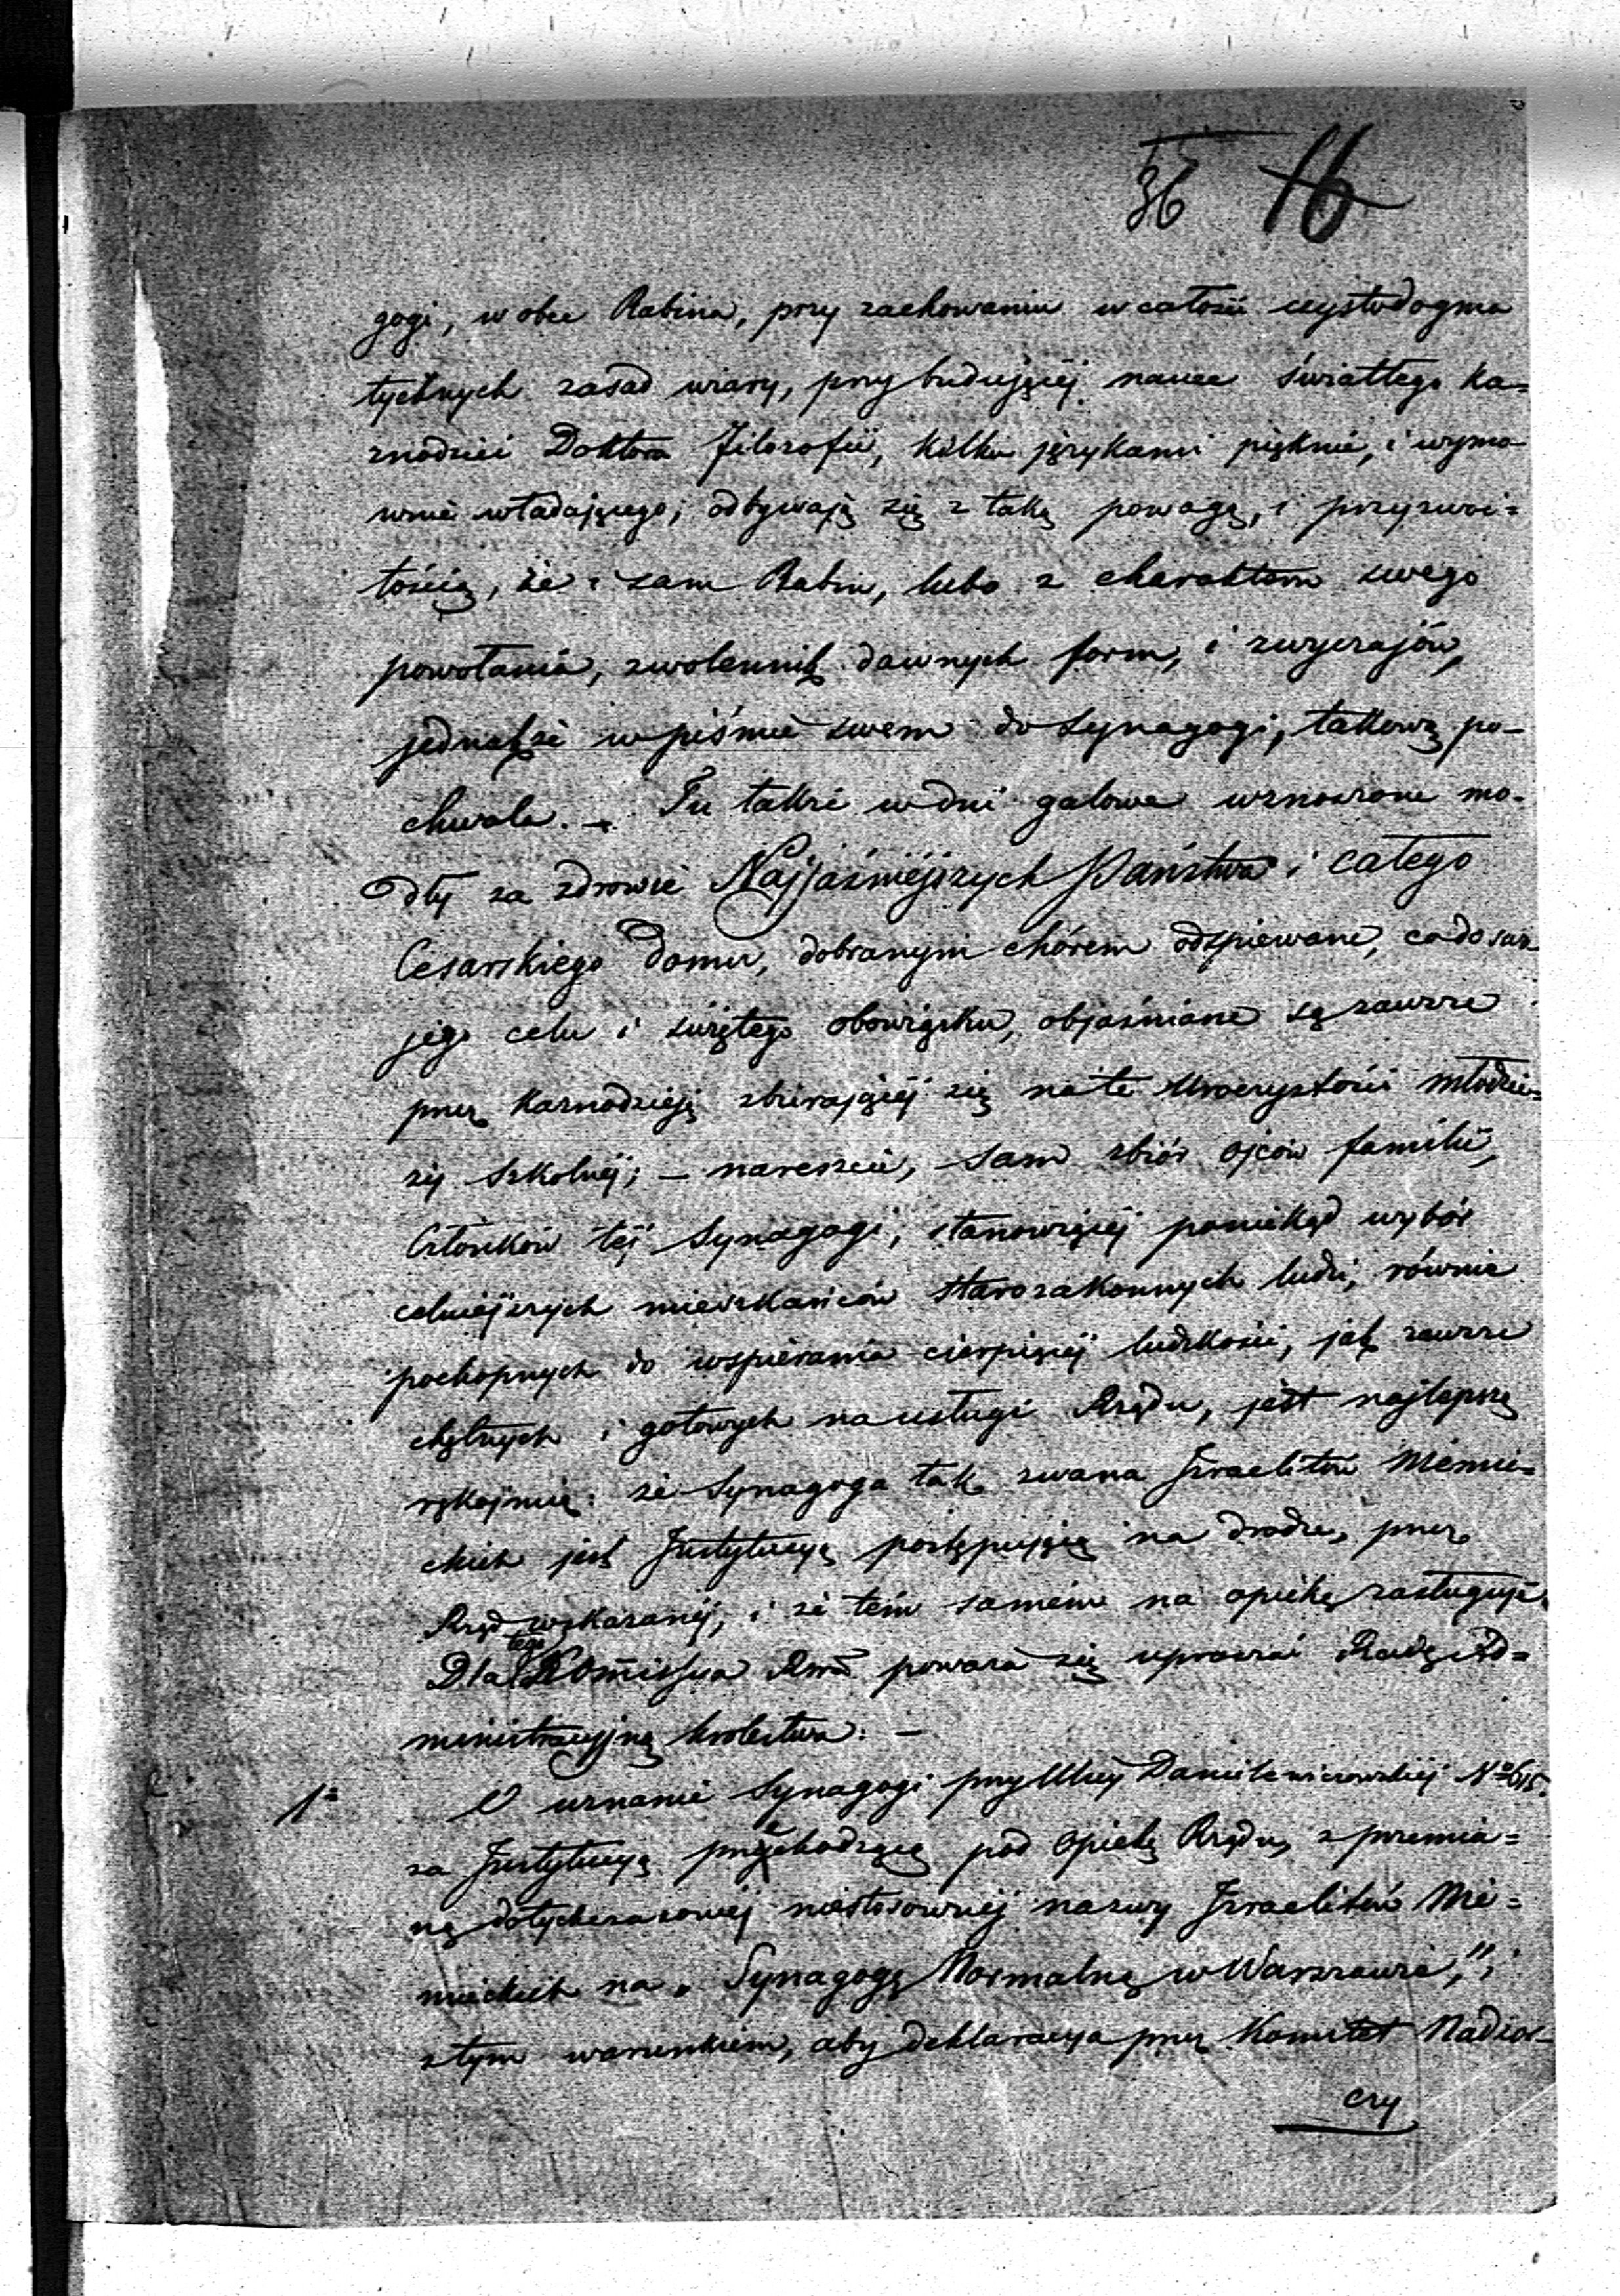 36 16
gogi, w obec Rabina, przy zachowaniu w całości czysto dogma
tycznych zasad wiary, przy budującej nauce światłego ka=
znodziei Doktora Filozofii, kilku językami pięknie, i wymo
wnie władającego; odbywają się z taką powagą, i przyzwoi=
tością, że i sam Rabin, lubo z charakteru swego
powołania, zwolennik dawnych form, i zwyczajów,
jednakże w piśmie swem do Synagogi, takową po-
chwala. – Tu także w dni galowe wznoszone mo-
dły za zdrowie Najjaśniejszych Państwa i całego
Cesarskiego Domu, dobranym chórem odśpiewane, co do swo
jego celu i świętego obowiązku, objaśniane są zawsze
przez Kaznodzieję zbierającej się na te Uroczystości młodzie=
ży Szkolnéj; – nareszcie, sam zbiór ojców familii,
Członków téj Synagogi, stanowiącéj poniekąd wybór
celniejszych mieszkańców starozakonnych ludzi, równie
pochopnych do wspierania cierpiącéj ludzkości, jak zawsze
chętnych i gotowych na usługi Rządu, jest najlepszą
rękojmią: że Synagoga tak zwana Izraelitów Niemie=
ckich jest Instytucyą postępującą na drodze, przez
Rząd wskazanéj, i że tém samém na opiekę zasługuje.
Dla tego Kommissya Rzą. poważa się upraszać Radę Ad=
ministracyjną Królestwa: –
1º O uznanie Synagogi przy Ulicy Daniłowiczowskiej Nº 615.
za Instytucyą przechodzącą pod Opiekę Rządu, z przemia=
ną dotychczasowéj niestosownéj nazwy Izraelitów Nie=
mieckich na „Synagogę Normalną w Warszawie,” i
z tym warunkiem, aby deklaracya przez Komitet Nadzor-
czy